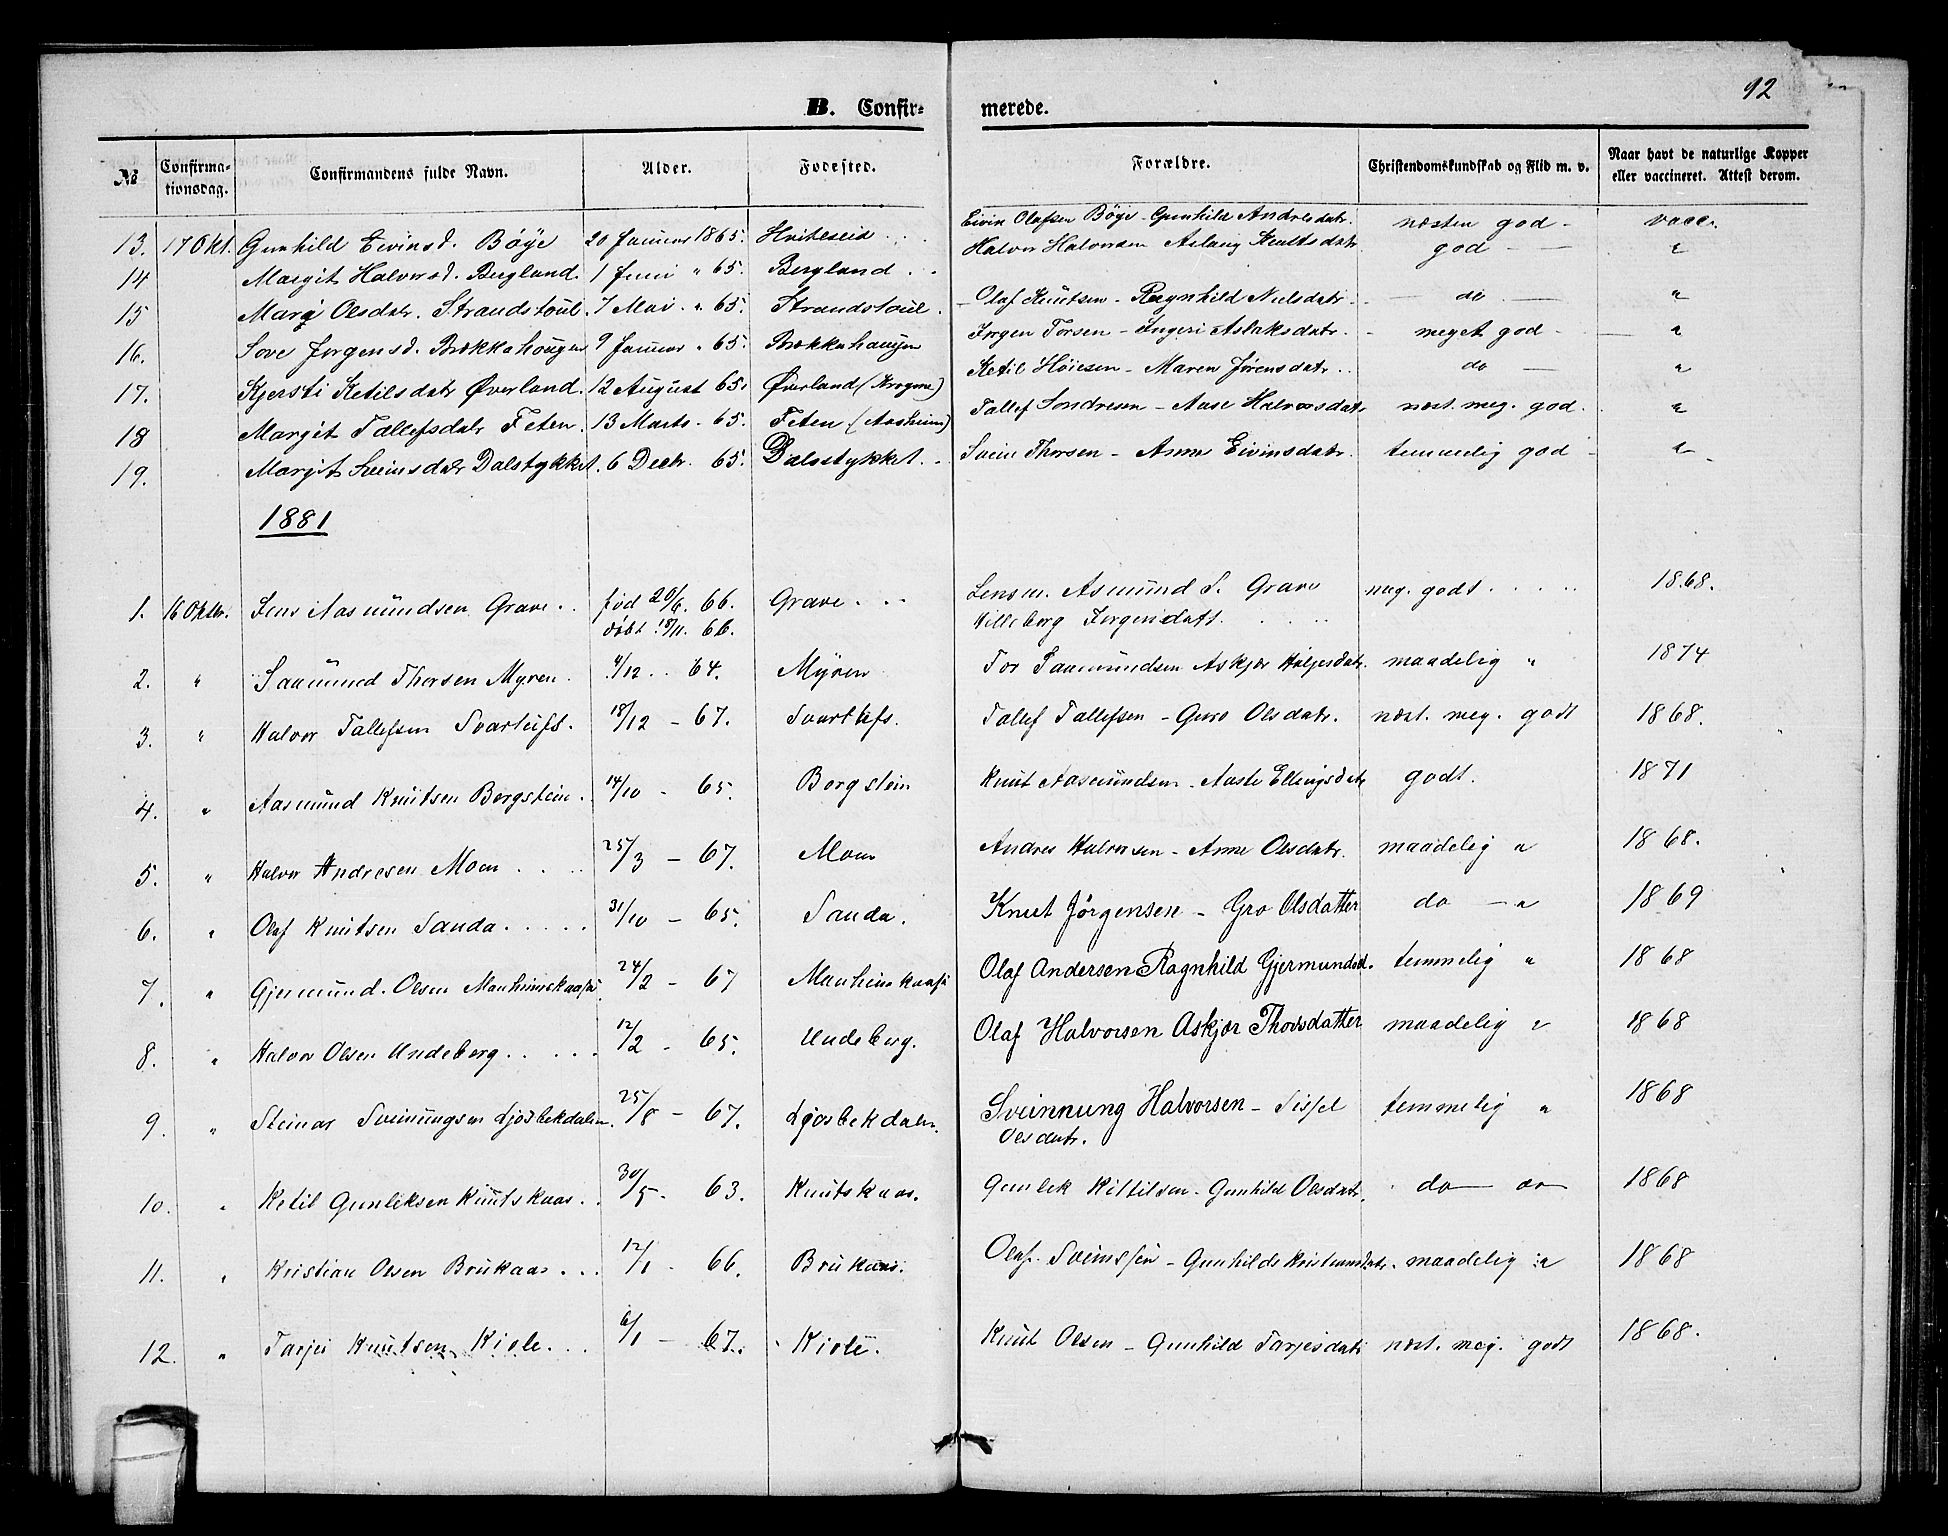 92
B. Confir- merede.
№ Confirma-tionsdag. Confirmandens fulde Navn. Alder. Fødested. Forældre. Christendomskundskab og Flid m. v. Naar havt de naturlige Kopper eller vaccineret. Attest derom.
13. 17 Okt. Gunhild Eivinsd. Böye 20 Januar 1865. Hviteseid Eivin Olafsen Böye - Gunhild Andresdatr. næsten god - vacc.
14 Margit Halversd. Bergland. 1 Juni " 65. Bergland Halvor Halvorsen Aslaug Knutsdatr god - "
15 Margi Olsdatr. Strandstoul. 7 Mai. " 65. Strandstoul. Olaf Knutsen - Ragnhild Nielsdatr. - do - "
16. Sove Jørgensd. Brækkehougen 9 Januar " 65. Brækkehaugen Jørgen Torsen - Ingeri Aslaksdatr. - meget god - "
17. Kjersti Ketilsdatr Øverland. 12 August 65. Øverland Ketil Høiesen - Maren Jörensdatr. do - "
18 Margit Tallefsdatr Feten. 13 Marts. 65. Feten (Aasheim) Tallef Sondresen - Aase Halvorsdatr næst. meg. god. "
19. Margit Sveinsdatr Dalstykket. 6 Decbr. 65. Dalsstykket. Svein Thorsen - Anne Eivinsdatr. temmelig god - "
1881
1. 16 Oktbr. Jens Aasmundsen Grave født 20/6. 66. Grave Lensm. Asmund S. Grave meg. godt 1868.
døbt 18/11. 66. Villeborg Jørgensdatt.
2. " Saamund Thorsen Myren. 4/12 64. Myren Tor Saamundsen Askjær Høljesdatr. maadelig " 1874
3. " Halvor Tallefsen Svartufs. 18/12 - 67. Svartufs. Tallef Tallefsen - Guro Olsdatr. næst. meg. godt 1868.
4. " Aasmund Knutsen Borgstein. 14/10 - 65. Borgstein Knut Aasmundsen - Aaste Ellingsdatr godt. 1871
5. " Halvor Andresen Moen 25/3 - 67. Moen Andres Halvorsen - Anne Olsdatr. maadelig " 1868.
6. " Olaf Knutsen Sanda. 31/10 - 65. Sanda. Knut Jörgensen - Gro Olsdatter do - " 1869
7. " Gjermund Olsen Manheimskaasa 24/2 - 67 Manheimskaasa Olaf Andersen Ragnhild Gjermundsd. temmelig " 1868
8. " Halvor Olsen Undeberg. 12/2 - 65. Undeberg. Olaf Halvorsen Askjær Thorsdatter maadelig " 1868
9. " Steinar Sveinungsen Ljosbekdalen. 25/8 - 67. Ljosbekdalen. Sveinnung Halvorsen - Sissel temmelig " 1868
Olsdatr.
10. " Ketil Gunleksen Knutskaas. 30/5 - 63. Knutskaas. Gunlek Kittilsen - Gunhild Olsdatr. do 1868
11. " Kristian Olsen Brukaas 12/1 - 66. Brukaas. Olaf Sveinssen - Gunhild Kristiansdatr. maadelig " 1868
12. " Tarjei Knutsen Kivle. 6/1 - 67. Kivle. Knut Olsen - Gunhild Tarjesdatr næst. meg. godt 1868.